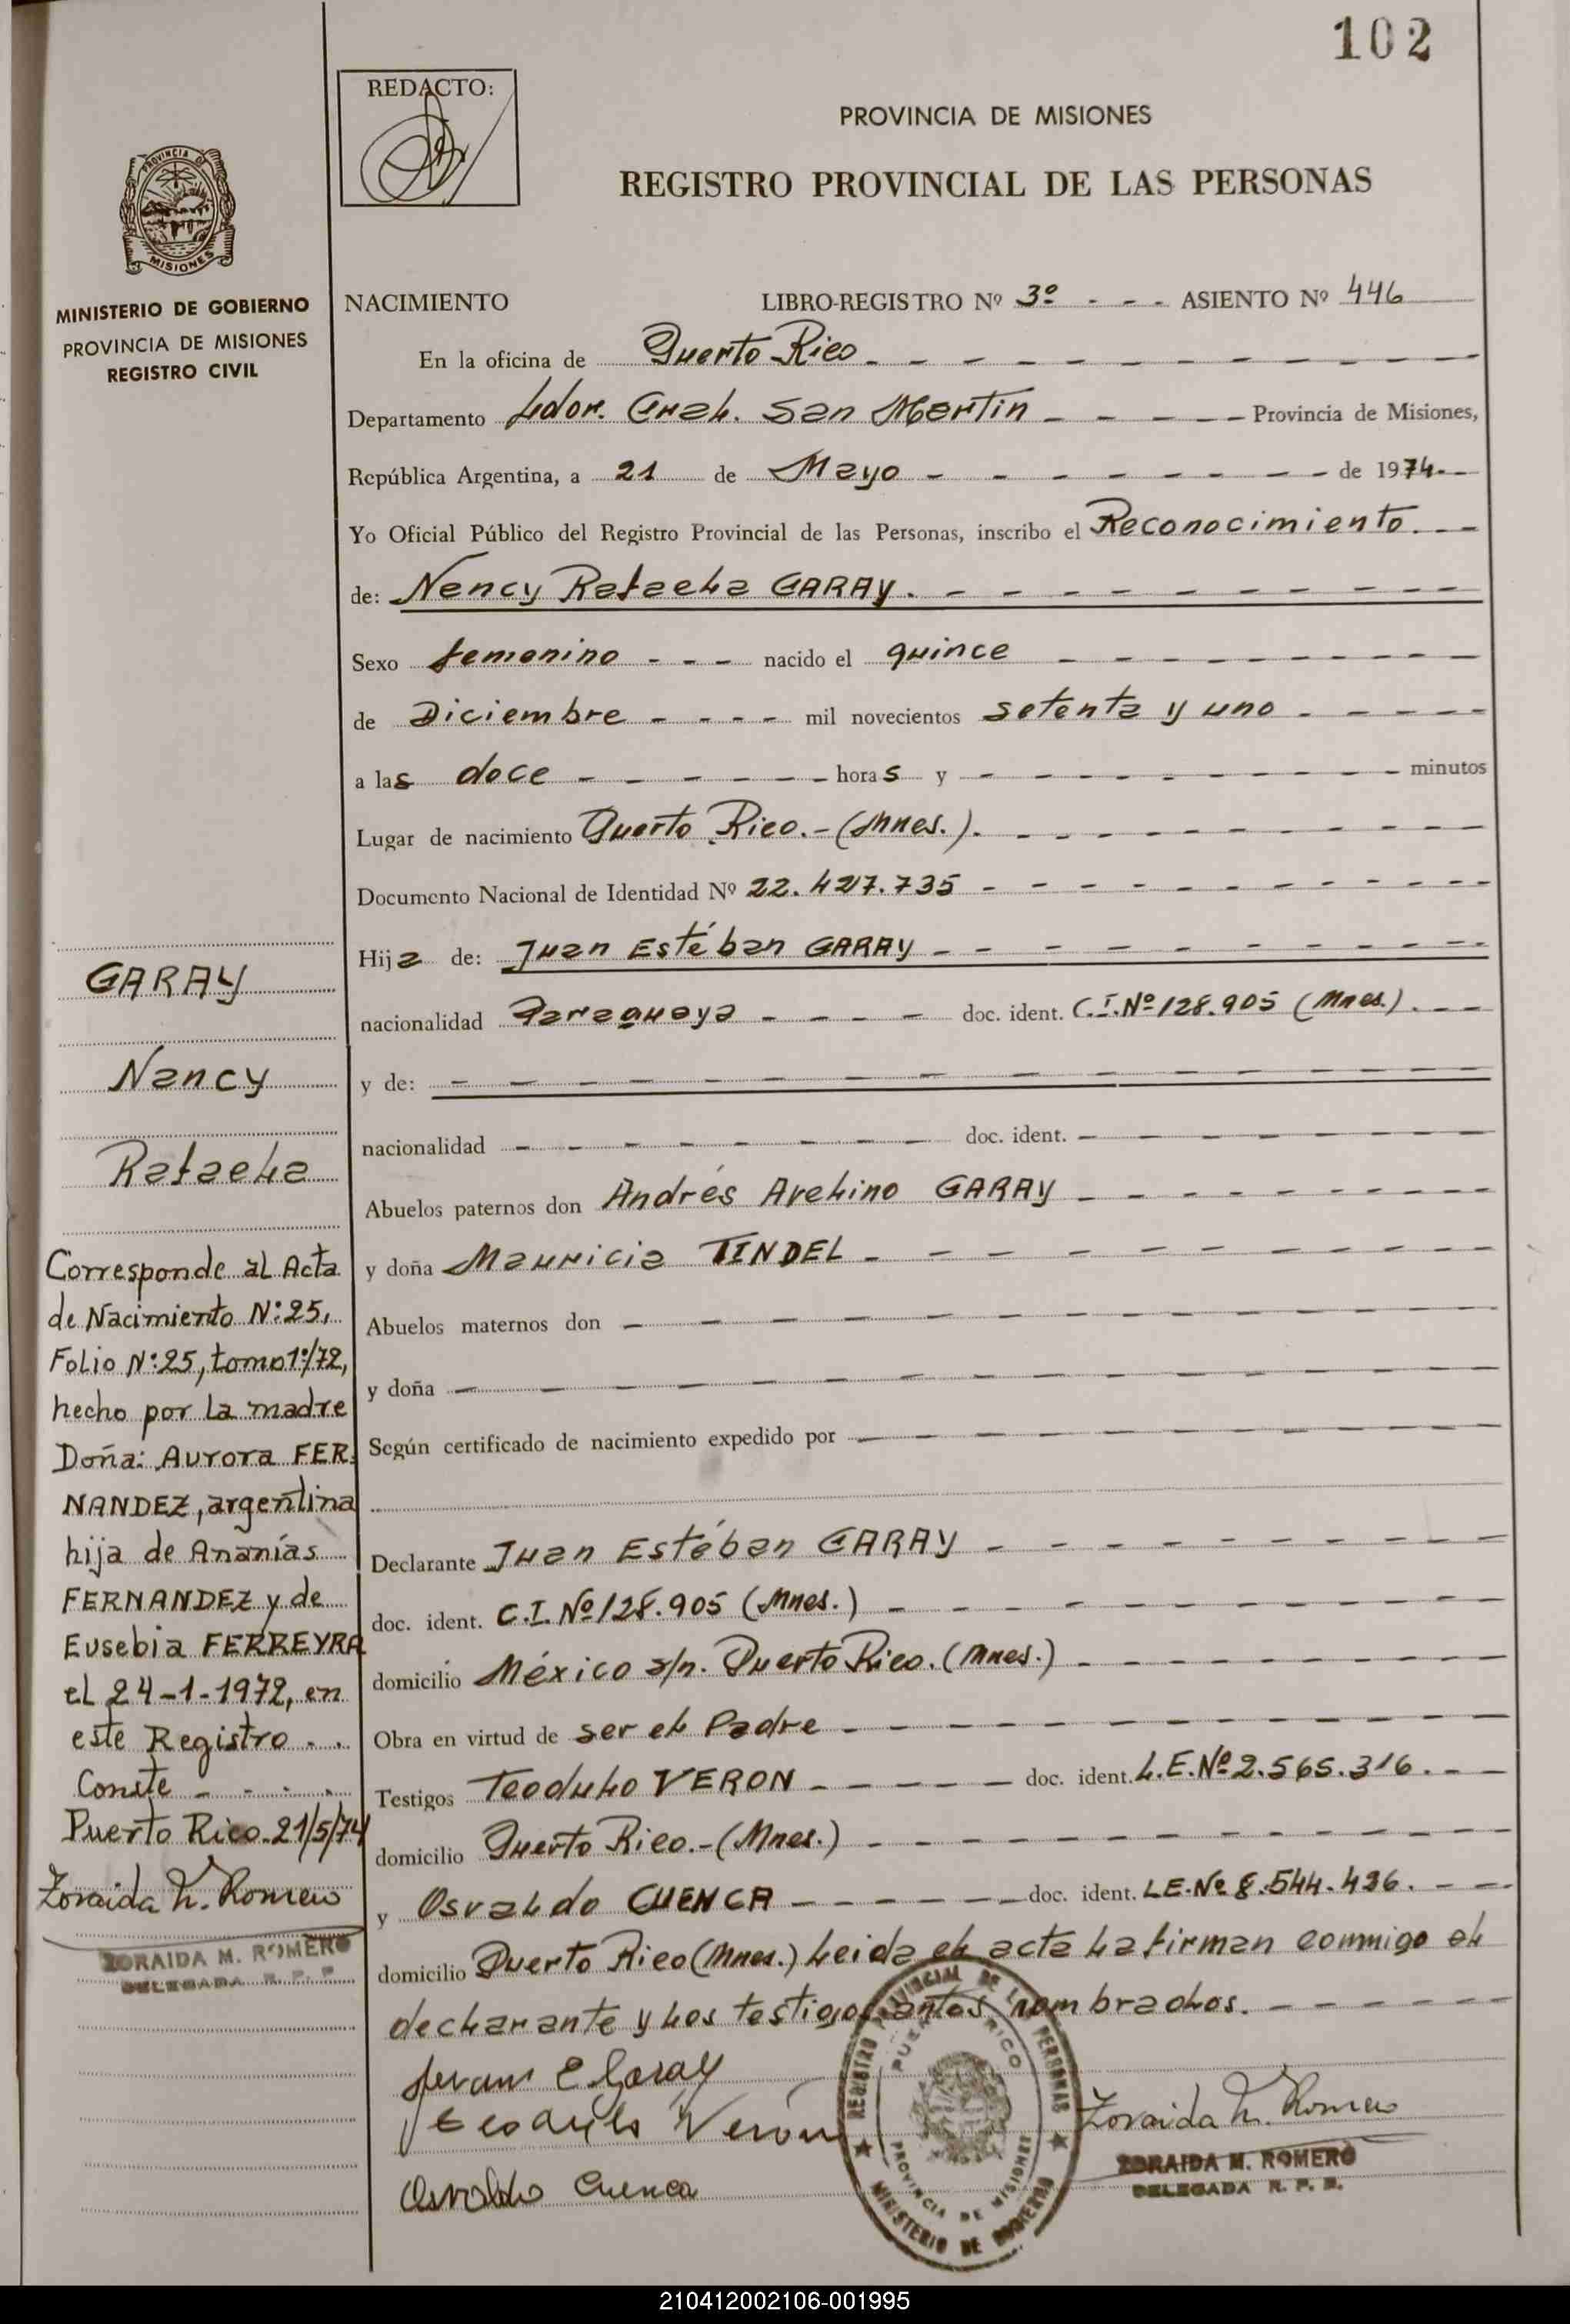 102
REDACTO:
PROVINCIA DE MISIONES
REGISTRO PROVINCIAL DE LAS PERSONAS
PROVINCIA DE
MISIONES
MINISTERIO DE GOBIERNO
PROVINCIA DE MISIONES
REGISTRO CIVIL
NACIMIENTO LIBRO-REGISTRO Nº 3º - - - ASIENTO Nº 446
En la oficina de Puerto Rico
Departamento Ldor. Gral. San Martín Provincia de Misiones,
República Argentina, a 21 de Mayo de 1974.
Yo Oficial Público del Registro Provincial de las Personas, inscribo el Reconocimiento.
de: Nancy Rafaela GARAY.
Sexo femenino nacido el quince
de Diciembre mil novecientos setenta y uno
a las doce horas y minutos
Lugar de nacimiento Puerto Rico.-(Mnes.).
Documento Nacional de Identidad Nº 22.427.735
Hija de: Juan Estéban GARAY
nacionalidad Paraguaya doc. ident. C.I.Nº128.905 (Mnes.).
y de:
nacionalidad doc. ident.
Abuelos paternos don Andrés Avelino GARAY
y doña Mauricia TINDEL
Abuelos maternos don
y doña
Según certificado de nacimiento expedido por
Declarante Juan Estéban GARAY
doc. ident. C.I.Nº128.905 (Mnes.)
domicilio México s/n. Puerto Rico.(Mnes.)
Obra en virtud de ser el Padre
Testigos Teodulo VERON doc. ident. L.E.Nº2.565.316.
domicilio Puerto Rico.-(Mnes.)
y Osvaldo CUENCA doc. ident. LE.Nº 8.544.436.
domicilio Puerto Rico(Mnes.) Leida el acta la firman conmigo el
declarante y los testigos antes nombrados.
Juan E. Garay
Teodulo Verón
Osvaldo Cuenca
REGISTRO PROVINCIAL DE LAS PERSONAS
PUERTO RICO
PROVINCIA DE MISIONES
MINISTERIO DE GOBIERNO
Zoraida M. Romero
ZORAIDA M. ROMERO
DELEGADA R. P. P.
GARAY
Nancy
Rafaela
Corresponde al Acta
de Nacimiento Nº:25,
Folio Nº:25, tomo1º/72,
hecho por la madre
Doña: Aurora FER-
NANDEZ, argentina
hija de Ananías
FERNANDEZ y de
Eusebia FERREYRA
el 24-1-1972, en
este Registro - .
Conste - - - -
Puerto Rico. 21/5/74
Zoraida M. Romero
ZORAIDA M. ROMERO
DELEGADA R. P. P.
210412002106-001995